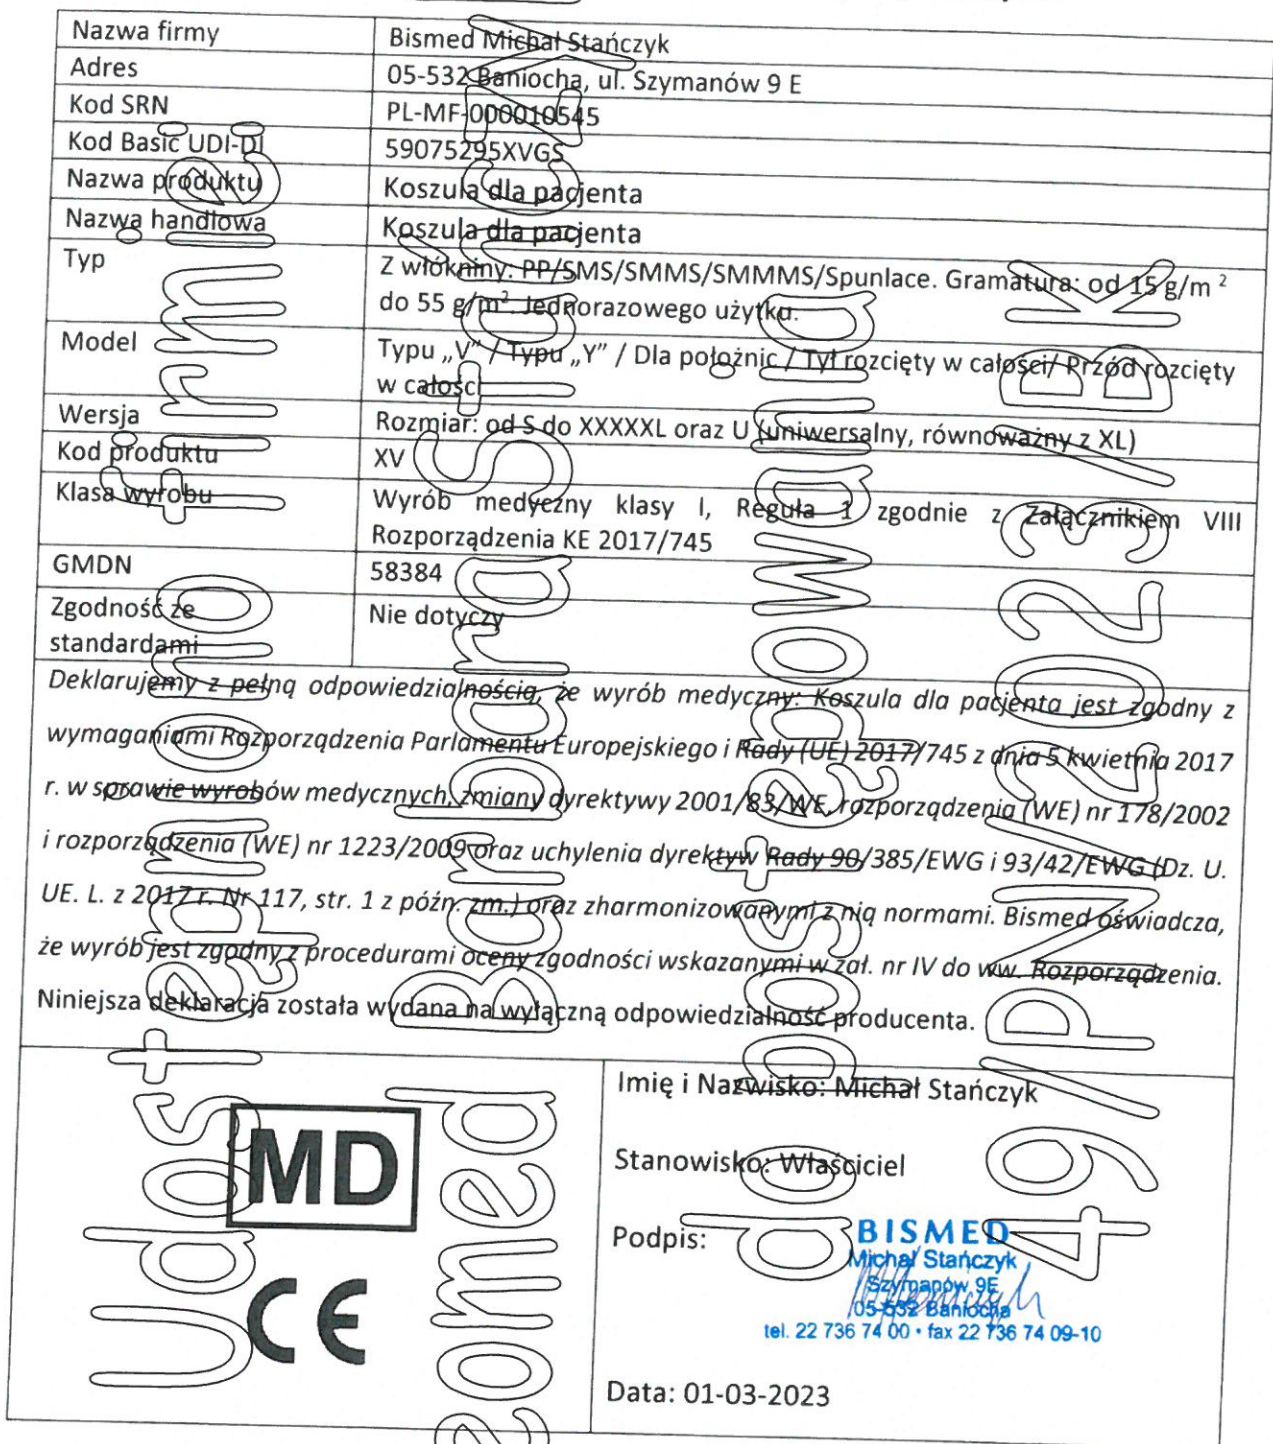 Nazwa firmy Bismed Michał Stańczyk
Adres 05-532 Baniocha, ul. Szymanów 9 E
Kod SRN PL-MF-000010545
Kod Basic UDI-DI 59075295XVGS
Nazwa produktu Koszula dla pacjenta
Nazwa handlowa Koszula dla pacjenta
Typ Z włókniny: PP/SMS/SMMS/SMMMS/Spunlace. Gramatura: od 15 g/m ²
do 55 g/m². Jednorazowego użytku.
Model Typu „V” / Typu „Y” / Dla położnic / Tył rozcięty w całości/ Przód rozcięty
w całości
Wersja Rozmiar: od S do XXXXXL oraz U (uniwersalny, równoważny z XL)
Kod produktu XV
Klasa wyrobu Wyrób medyczny klasy I, Reguła 1 zgodnie z Załącznikiem VIII
Rozporządzenia KE 2017/745
GMDN 58384
Zgodność ze Nie dotyczy
standardami
Deklarujemy z pełną odpowiedzialnością, że wyrób medyczny: Koszula dla pacjenta jest zgodny z
wymaganiami Rozporządzenia Parlamentu Europejskiego i Rady (UE) 2017/745 z dnia 5 kwietnia 2017
r. w sprawie wyrobów medycznych, zmiany dyrektywy 2001/83/WE, rozporządzenia (WE) nr 178/2002
i rozporządzenia (WE) nr 1223/2009 oraz uchylenia dyrektyw Rady 90/385/EWG i 93/42/EWG (Dz. U.
UE. L. z 2017 r. Nr 117, str. 1 z późn. zm.) oraz zharmonizowanymi z nią normami. Bismed oświadcza,
że wyrób jest zgodny z procedurami oceny zgodności wskazanymi w zał. nr IV do ww. Rozporządzenia.
Niniejsza deklaracja została wydana na wyłączną odpowiedzialność producenta.
MD
CE
Imię i Nazwisko: Michał Stańczyk
Stanowisko: Właściciel
Podpis:
BISMED
Michał Stańczyk
Szymanów 9E
05-532 Baniocha
tel. 22 736 74 00 • fax 22 736 74 09-10
Data: 01-03-2023
Udostępniono firmie:
Barbara Stańczyk
do postępowania
49/PN/2023/BK